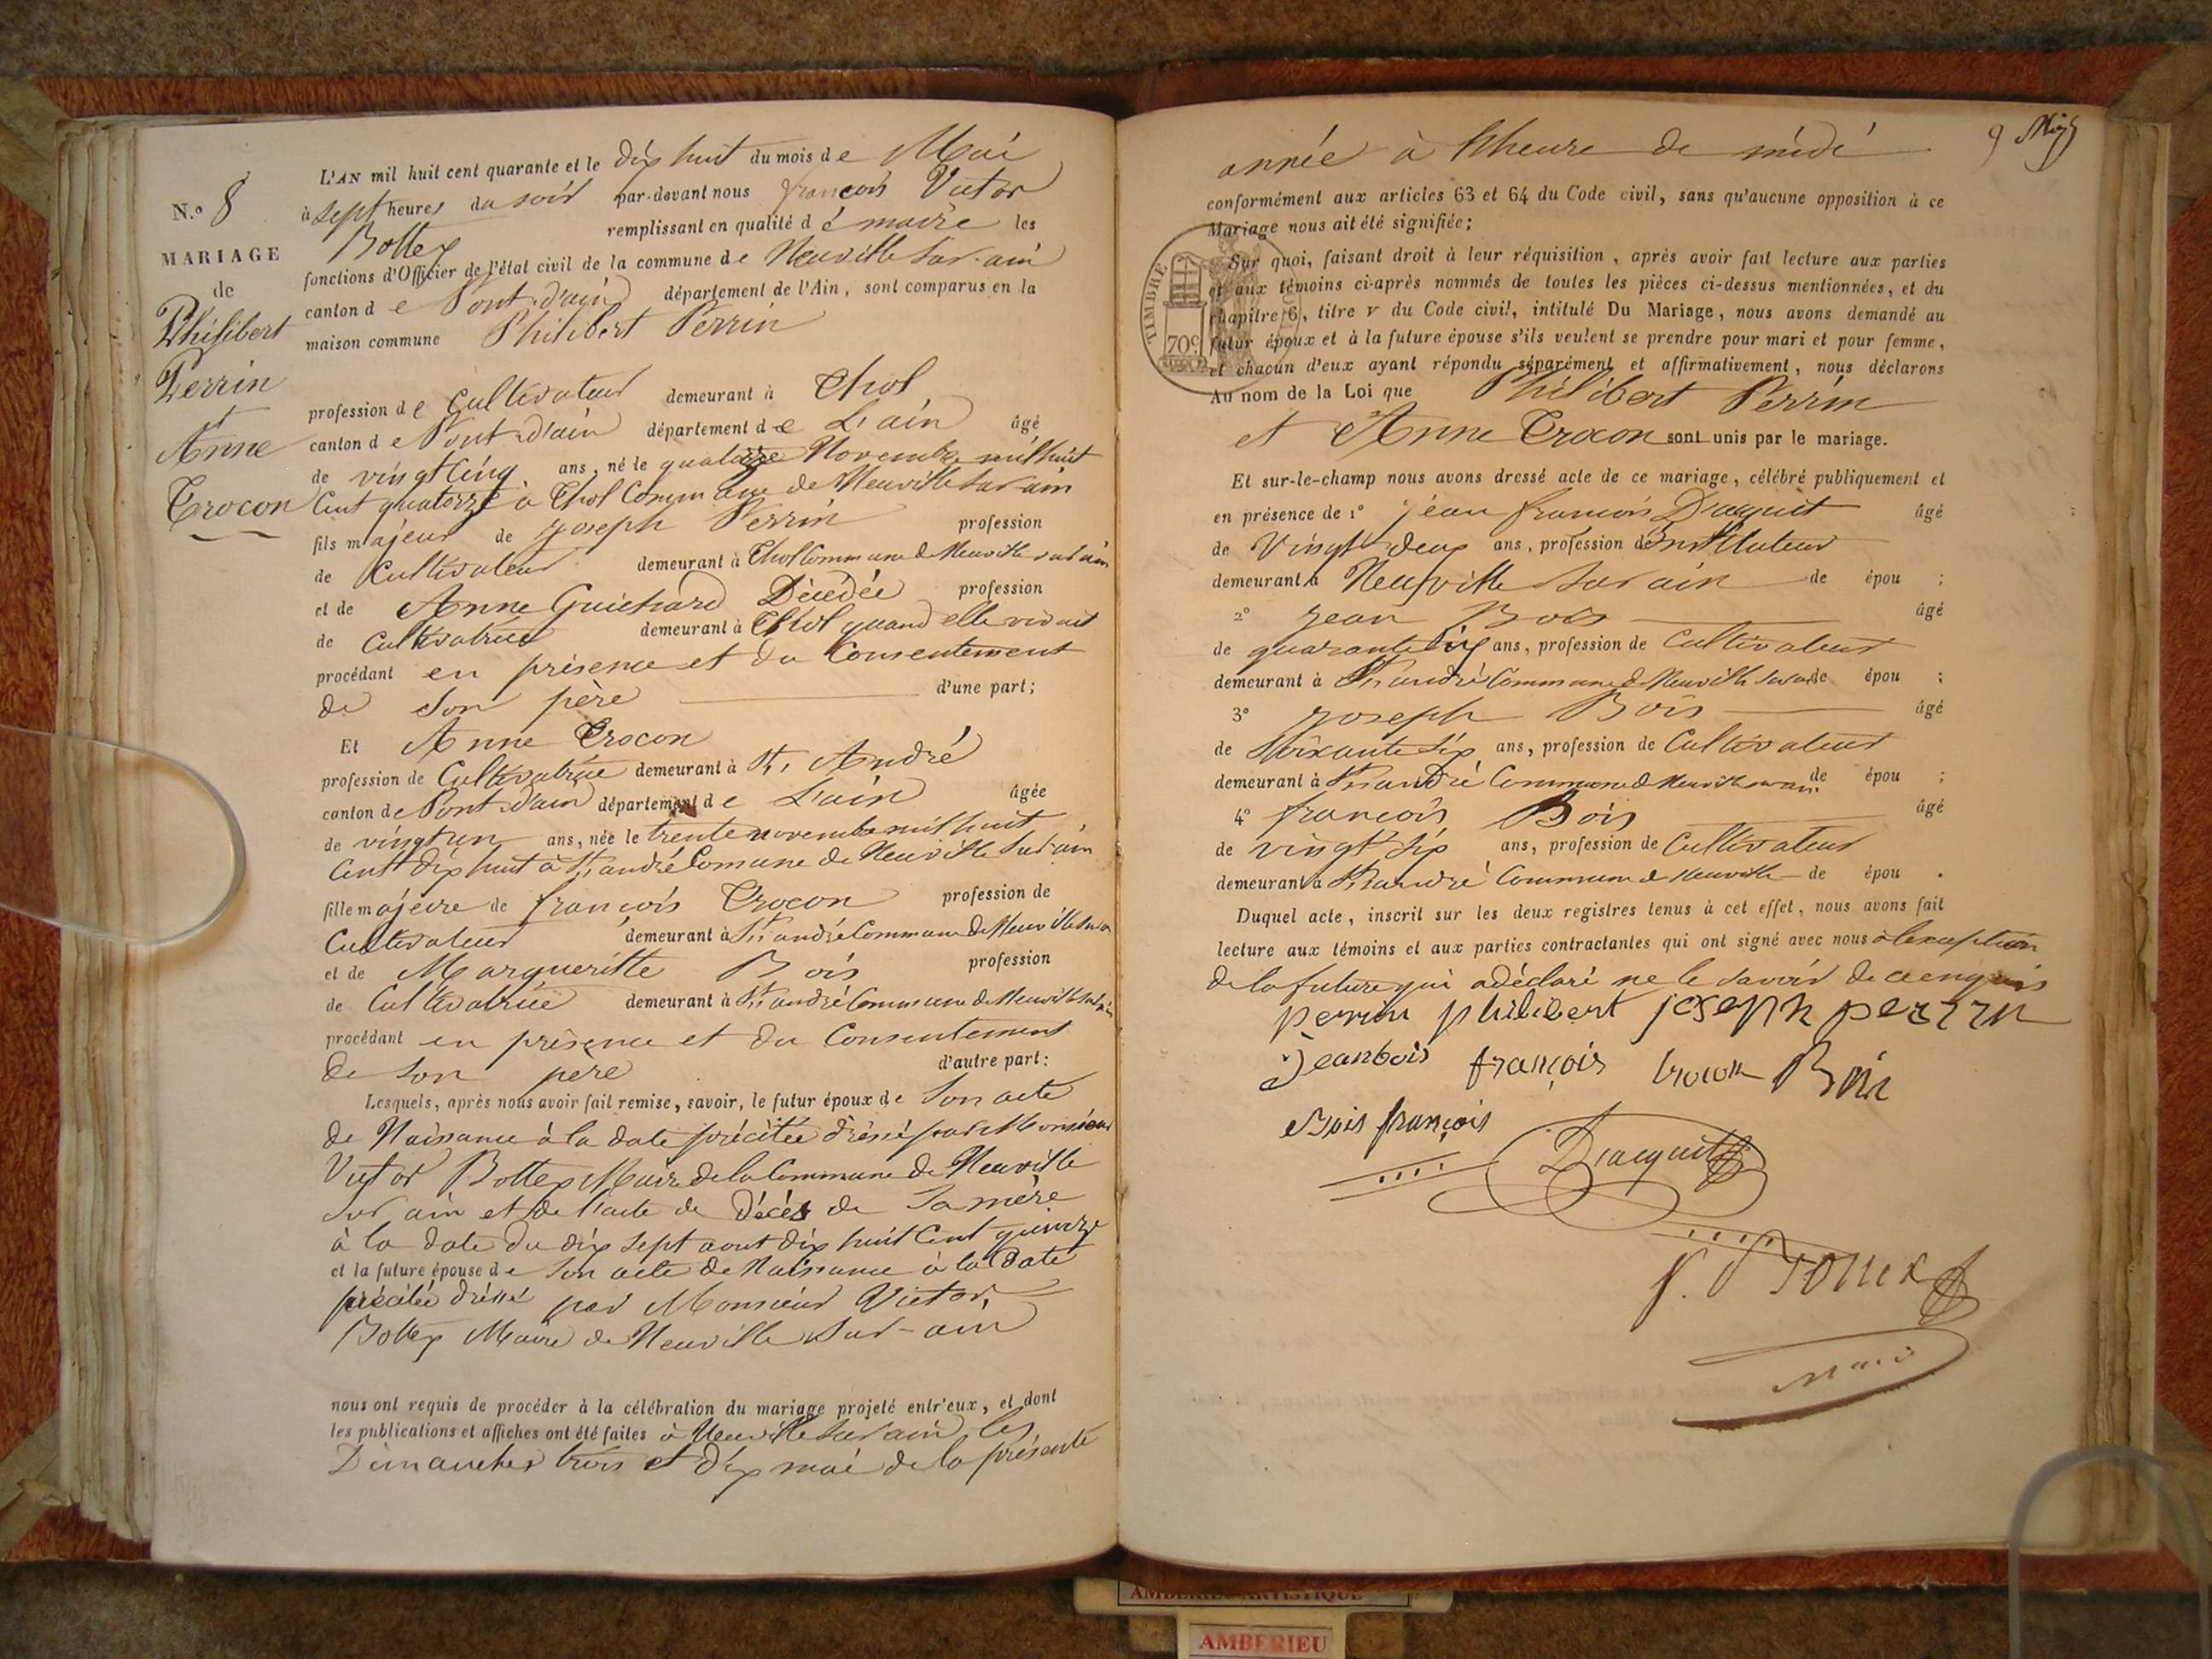 N.o 8
MARIAGE
de
Philibert
Perrin
et
Anne
Crocon
L'AN mil huit cent quarante et le dix huit du mois de Mai
à sept heures du soir par-devant nous françois Victor
Bottex remplissant en qualité de maire les
fonctions d'Officier de l'état civil de la commune de Neuville sur-ain
canton de Pont-d'ain département de l'Ain, sont comparus en la
maison commune Philibert Perrin
profession de Cultivateur demeurant à Chol
canton de Pont-d'ain département de L'ain âgé
de vingt Cinq ans, né le quatorze Novembre mil huit
Cent quatorze à Chol Commune de Neuville sur ain
fils majeur de joseph Perrin profession
de Cultivateur demeurant à Chol Commune de Neuville sur ain
et de Anne Guichard Décédée profession
de Cultivatrice demeurant à Chol quand elle vivait
procédant en présence et du Consentement
de son père d'une part;
Et Anne Crocon
profession de Cultivatrice demeurant à St. André
canton de Pont-d'ain département de L'ain âgée
de vingt un ans, née le trente novembre mil huit
Cent dix huit à St. andré Comune de Neuville sur ain
fille majeure de françois Crocon profession de
Cultivateur demeurant à St. andré Commune de Neuville sur ain
et de Margueritte Bois profession
de Cultivatrice demeurant à St. andré Commune de Neuville sur ain
procédant en présence et du Consentement
de son père d'autre part:
Lesquels, après nous avoir fait remise, savoir, le futur époux de Son acte
de Naissance à la date précitée dréssé par Monsieur
Victor Bottex Maire de la Commune de Neuville
sur ain et de l'acte de Décès de Sa mère
à la date du dix sept aout dix huit Cent quinze
et la future épouse de Son acte de Naissance à la Date
précitée dréssé par Monsieur Victor
Bottex Maire de Neuville Sur-ain
nous ont requis de procéder à la célébration du mariage projeté entr'eux, et dont
les publications et affiches ont été faites à Neuville sur ain les
Dimanches trois et dix mai de la présente
9
année à l'heure de midi
conformément aux articles 63 et 64 du Code civil, sans qu'aucune opposition à ce
Mariage nous ait été signifiée;
TIMBRE
70c
Sur quoi, faisant droit à leur réquisition, après avoir fait lecture aux parties
et aux témoins ci-après nommés de toutes les pièces ci-dessus mentionnées, et du
chapitre 6, titre V du Code civil, intitulé Du Mariage, nous avons demandé au
futur époux et à la future épouse s'ils veulent se prendre pour mari et pour femme,
et chacun d'eux ayant répondu séparément et affirmativement, nous déclarons
Au nom de la Loi que Philibert Perrin
et Anne Crocon sont unis par le mariage.
Et sur-le-champ nous avons dressé acte de ce mariage, célébré publiquement et
en présence de 1o jean françois Dacquit âgé
de Vingt deux ans, profession d'instituteur
demeurant à Neuville sur ain de épou ;
2o jean Bois âgé
de quarante six ans, profession de Cultivateur
demeurant à St. andré Commune de Neuville sur ain de épou ;
3o joseph Bois âgé
de Soixante six ans, profession de Cultivateur
demeurant à St. andré Commune de Neuville sur ain de épou ;
4o françois Bois âgé
de vingt six ans, profession de Cultivateur
demeurant à St. andré Commune de Neuville de épou .
Duquel acte, inscrit sur les deux registres tenus à cet effet, nous avons fait
lecture aux témoins et aux parties contractantes qui ont signé avec nous à l'exception
de la future qui a déclaré ne le savoir de ce enquis
perrin philibert joseph perrin
Jean bois françois crocon Bois
Bois françois
Dacquit
f. V Bottex
Maire
AMBERIEU ARTISTIQUE
AMBERIEU